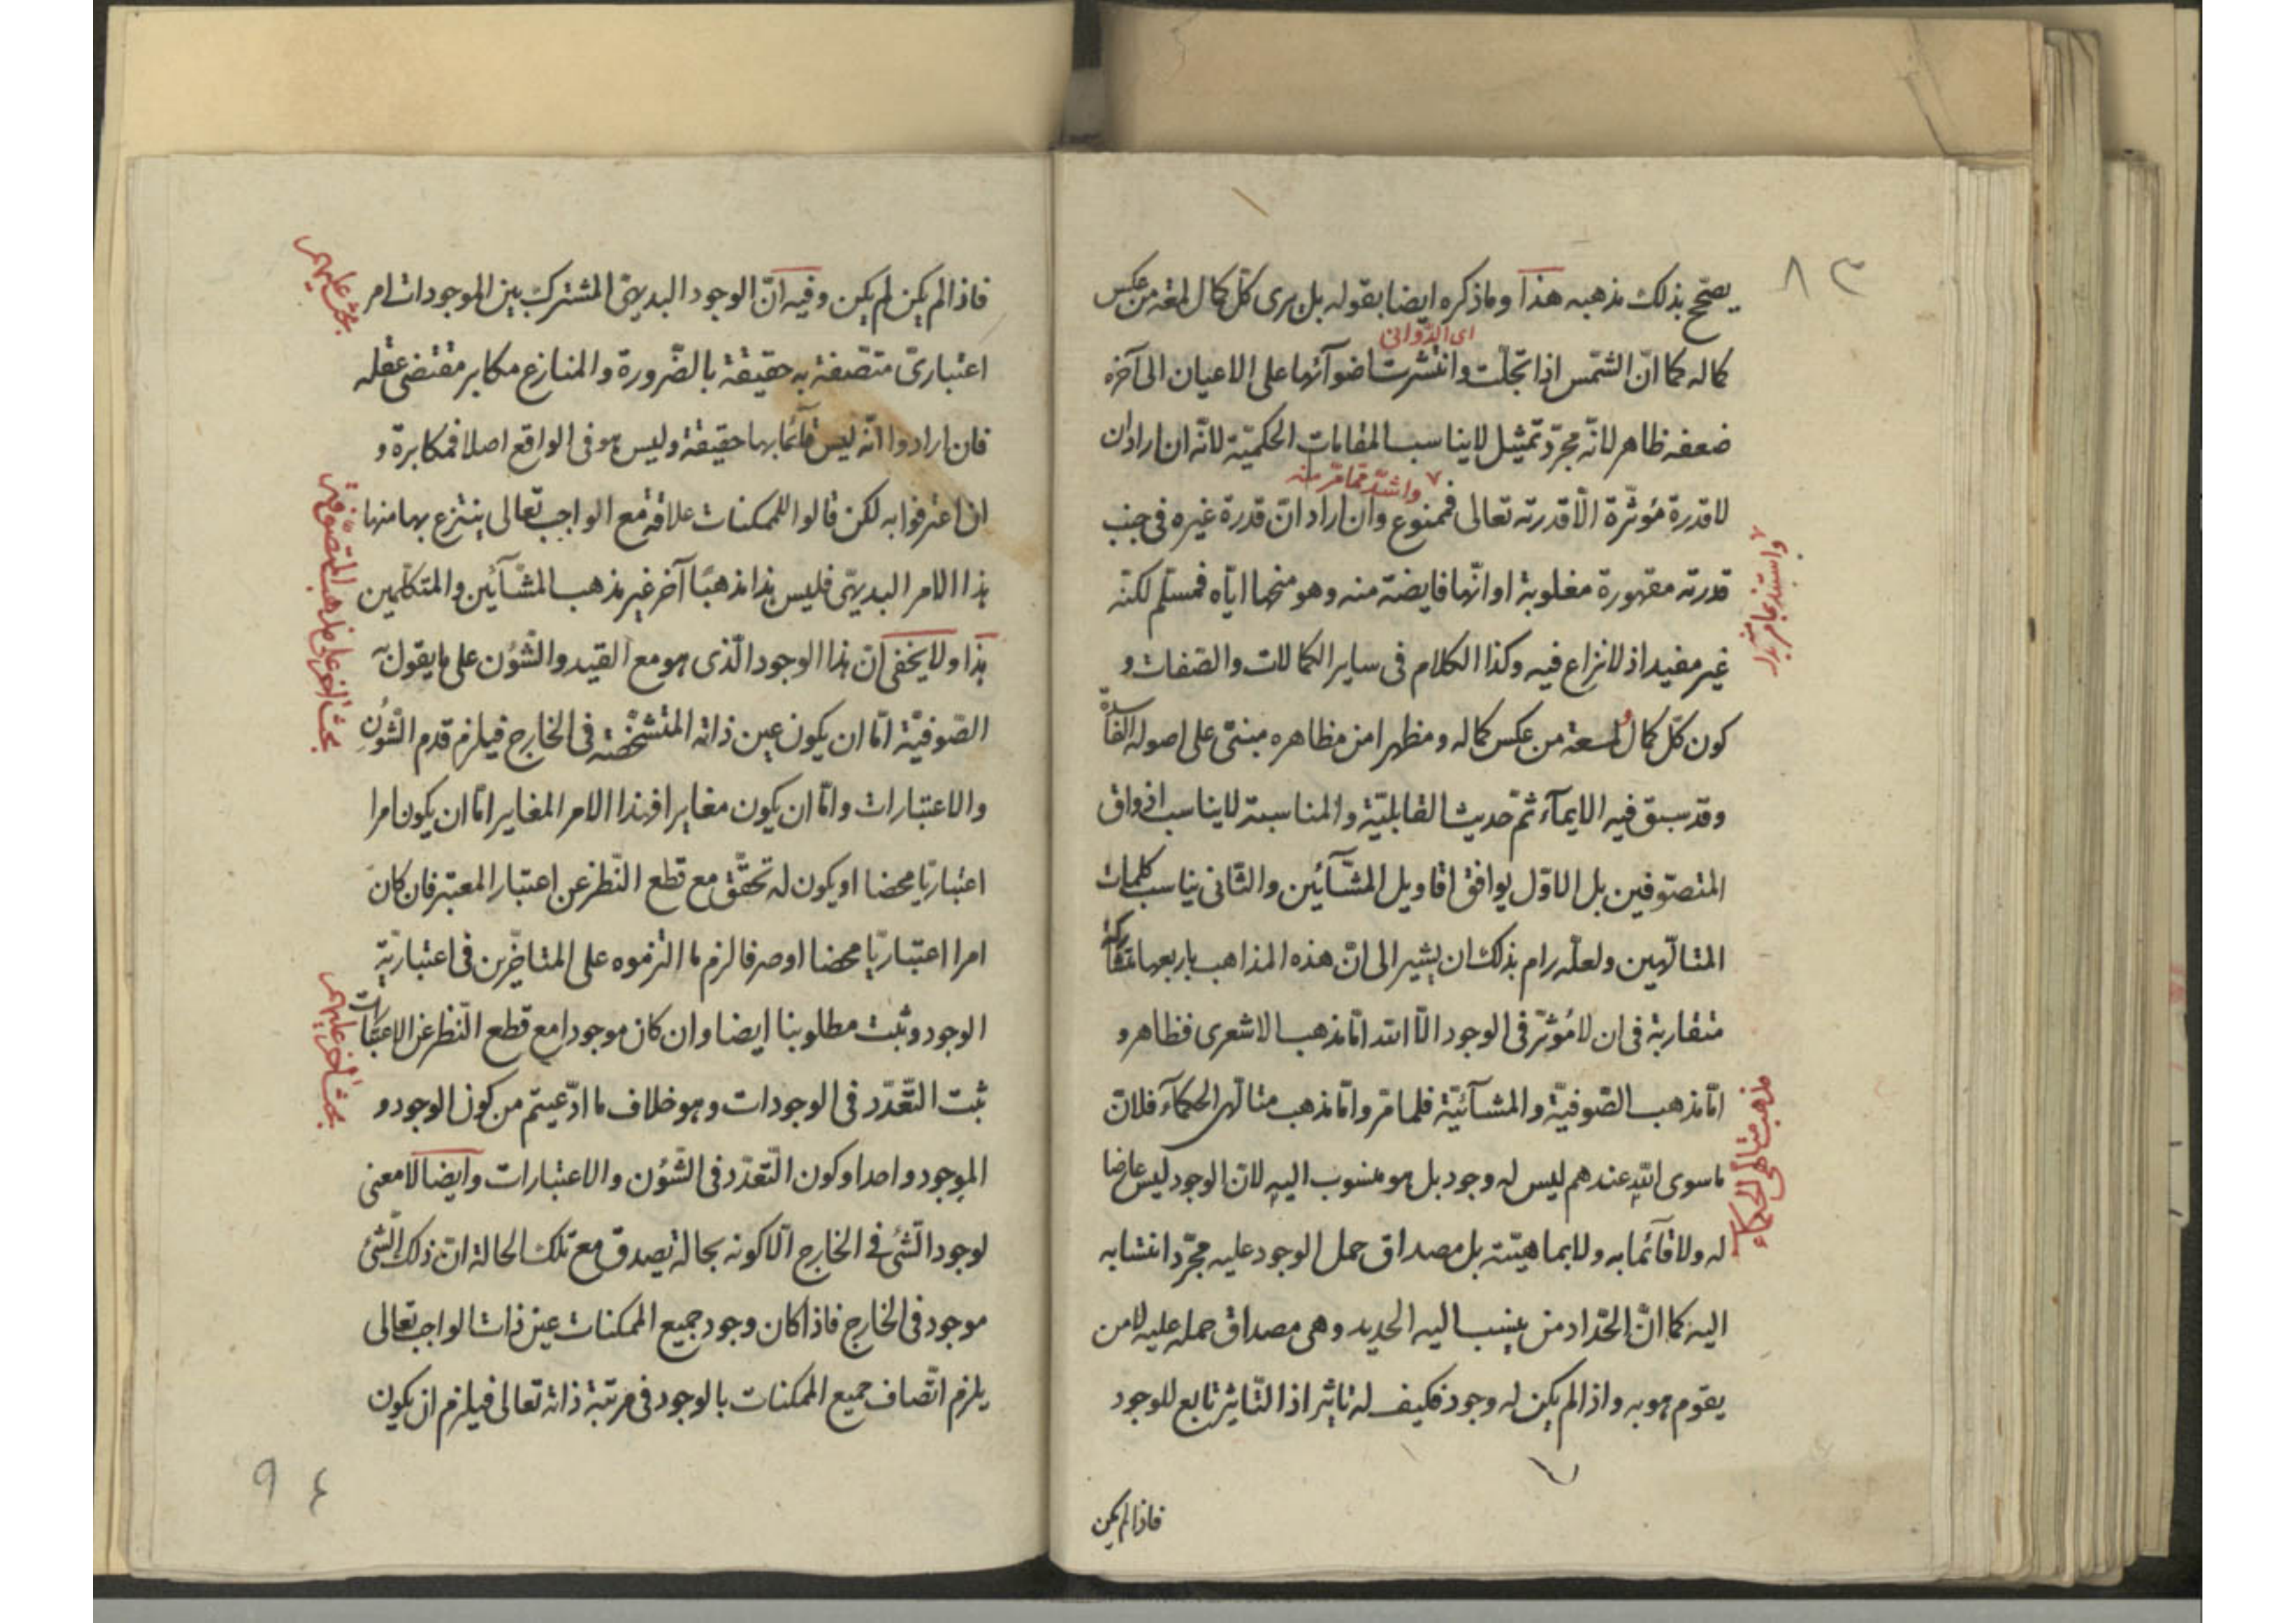 ٨٣
يصحّ بذلك مذهبه هذا وما ذكره ايضا بقوله بل يرى كلّ كمال لمعة من عكس
اى الدّوانى
كماله كما انّ الشّمس اذا تجلّت وانتشرت اضوآئها على الاعيان الى آخره
ضعفه ظاهر لانّه مجرّد تمثيل لا يناسب المقامات الحكميّة لانّه ان اراد ان
واشدّ ممّا مرّ منه
لا قدرة مؤثّرة الّا قدرته تعالى فممنوع وان اراد انّ قدرة غيره فى جنب
قدرته مقهورة مغلوبة او انّها فايضة منه وهو منحها ايّاه فمسلّم لكنّه
غير مفيد اذ لا نزاع فيه وكذا الكلام فى ساير الكمالات والصّفات و
كون كلّ كمال لمعة من عكس كماله ومظهرا من مظاهره مبنىّ على اصوله
وقد سبق فيه الايمآء ثمّ حديث القابليّة والمناسبة لا يناسب اذواق
المتصوّفين بل الاوّل يوافق اقاويل المشّآئين والثّانى يناسب كلمات
المتالّهين ولعلّه رام بذلك ان يشير الى انّ هذه المذاهب باربعها متشاركة
متقاربة فى ان لا مؤثّر فى الوجود الّا الله امّا مذهب الاشعرى فظاهر و
امّا مذهب الصّوفيّة والمشّآئيّة فلما مرّ وامّا مذهب متالّهى الحكمآء فلانّ
ما سوى الله عندهم ليس له وجود بل هو منسوب اليه لانّ الوجود ليس عارضا
له ولا قآئما به ولا بماهيّته بل مصداق حمل الوجود عليه مجرّد انتسابه
اليه كما انّ الحدّاد من ينسب اليه الحديد وهى مصداق حمله عليه لا من
يقوم هو به واذا لم يكن له وجود فكيف له تاثير اذ التّاثير تابع للوجود
مذهب متالهى الحكماء
فاذا لم يكن
فاذا لم يكن لم يكن وفيه انّ الوجود البديهىّ المشترك بين الموجودات امر
اعتبارىّ متّصفة به حقيقة بالضّرورة والمنازع مكابر مقتضى عقله
فان ارادوا انّه ليس قآئما بها حقيقة وليس هو فى الواقع اصلا فمكابرة و
ان اعترفوا به لكن قالوا للممكنات علاقة مع الواجب تعالى ينتزع بها منها
هذا الامر البديهىّ فليس هذا مذهبًا آخر غير مذهب المشّآئين والمتكلّمين
هذا ولا يخفى انّ هذا الوجود الّذى هو مع القيد والشّؤن على ما يقوله
الصّوفيّة امّا ان يكون عين ذاته المتشخّصة فى الخارج فيلزم قدم الشّؤن
والاعتبارات وامّا ان يكون مغايرا فهذا الامر المغاير امّا ان يكون امرا
اعتباريّا محضا او يكون له تحقّق مع قطع النّظر عن اعتبار المعتبر فان كان
امرا اعتباريّا محضا او صرفا لزم ما الزموه على المتاخّرين فى اعتباريّة
الوجود وثبت مطلوبنا ايضا وان كان موجودا مع قطع النّظر عن الاعتبارات
ثبت التّعدّد فى الوجودات وهو خلاف ما ادّعيتم من كون الوجود و
الموجود واحدا وكون التّعدّد فى الشّؤن والاعتبارات وايضا لا معنى
لوجود الشّئ فى الخارج الّا كونه بحالة يصدق مع تلك الحالة انّ ذلك الشّئ
موجود فى الخارج فاذا كان وجود جميع الممكنات عين ذات الواجب تعالى
يلزم اتّصاف جميع الممكنات بالوجود فى مرتبة ذاته تعالى فيلزم ان يكون
بحث عليهم
بحث آخر على مذهب المتصوّفة
بحث آخر عليهم